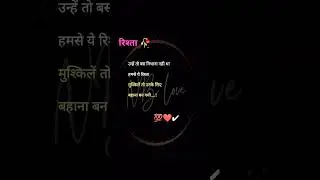 उन्हें तो बस निभाना नही था
हमसे ये रिश्ता
मुश्किलें तो उनके लिए
बहाना बन गयी....!
रिश्ता 🥀
उन्हें तो बस निभाना नही था
हमसे ये रिश्ता
मुश्किलें तो उनके लिए
बहाना बन गयी....!
Love
💯❤️✔